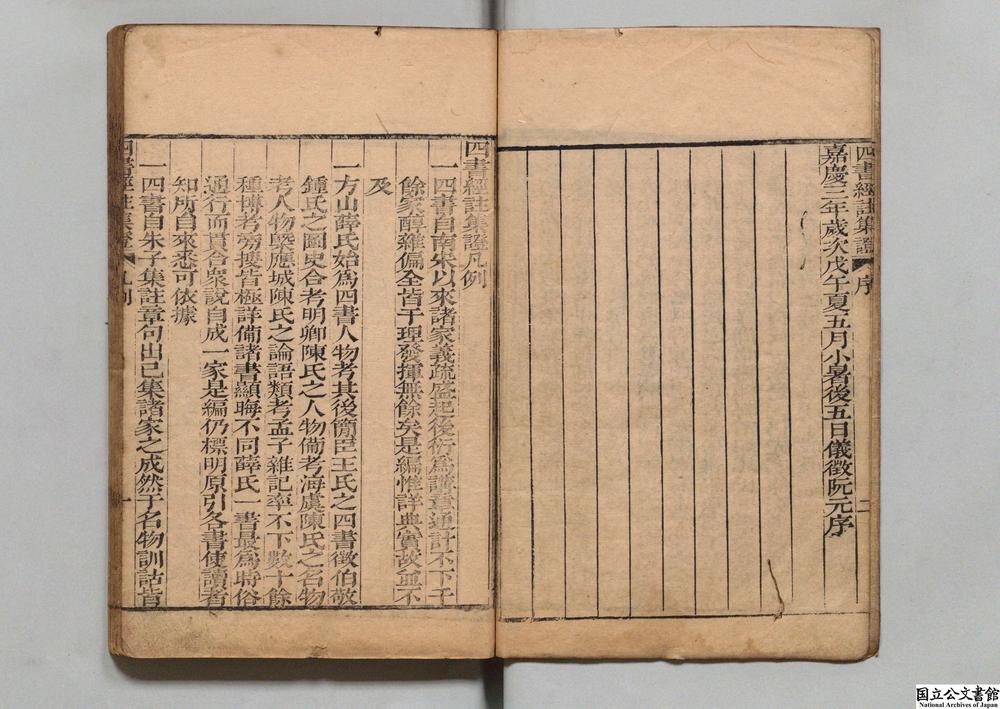 四書經註集證 序
嘉慶三年歲次戊午夏五月小暑後五日儀徵阮元序
二
四書經註集證凡例
一四書自南宋以來諸家義疏盛起後衍為講章通計不下千
餘家醇雜偏全皆于理發揮無餘矣是編惟詳典實故並不
及
一方山薛氏始為四書人物考其後簡臣王氏之四書徵伯敬
鍾氏之圖史合考明卿陳氏之人物備考海虞陳氏之名物
考人物槩應城陳氏之論語類考孟子雜記率不下數十餘
種博考旁搜皆極詳備諸書顯晦不同薛氏一書最為時俗
通行而貫合衆說自成一家是編仍標明原引各書使讀者
知所自來悉可依據
一四書自朱子集註章句出已集諸家之成然于名物訓詁皆
四書經註集證 凡例
一
国立公文書館
National Archives of Japan